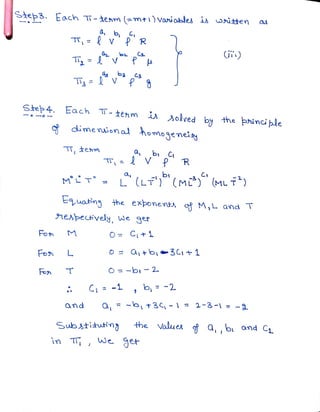 Step3. Each π-term (=m+1) variables is written as
π₁ = l^a₁ V^b₁ ρ^c₁ R
π₂ = l^a₂ V^b₂ ρ^c₂ μ (iii)
π₃ = l^a₃ V^b₃ ρ^c₃ g
Step4. Each π-term is solved by the principle
of dimensional homogeneity
π₁ term π₁ = l^a₁ V^b₁ ρ^c₁ R
M°L°T° = L^a₁ (LT⁻¹)^b₁ (ML⁻³)^c₁ (MLT⁻²)
Equating the exponents of M, L and T
respectively, we get
For M 0 = C₁+1
For L 0 = a₁+b₁-3C₁+1
For T 0 = -b₁-2
∴ C₁ = -1 , b₁ = -2
and a₁ = -b₁+3C₁-1 = 2-3-1 = -2
Substituting the values of a₁, b₁ and C₁
in π₁, we get